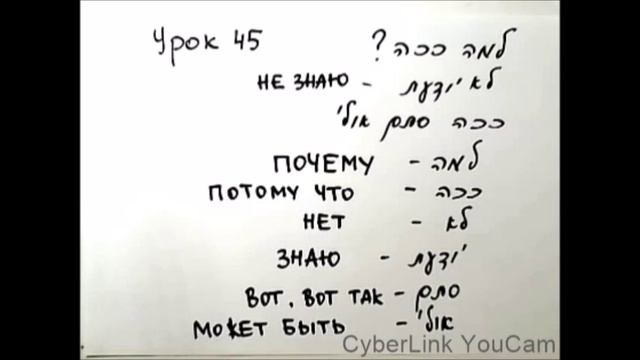 Урок 45 למה ככה?
НЕ ЗНАЮ - לא יודעת
ככה סתם אולי
ПОЧЕМУ - למה
ПОТОМУ ЧТО - ככה
НЕТ - לא
ЗНАЮ - יודעת
ВОТ, ВОТ ТАК - סתם
МОЖЕТ БЫТЬ - אולי
CyberLink YouCam